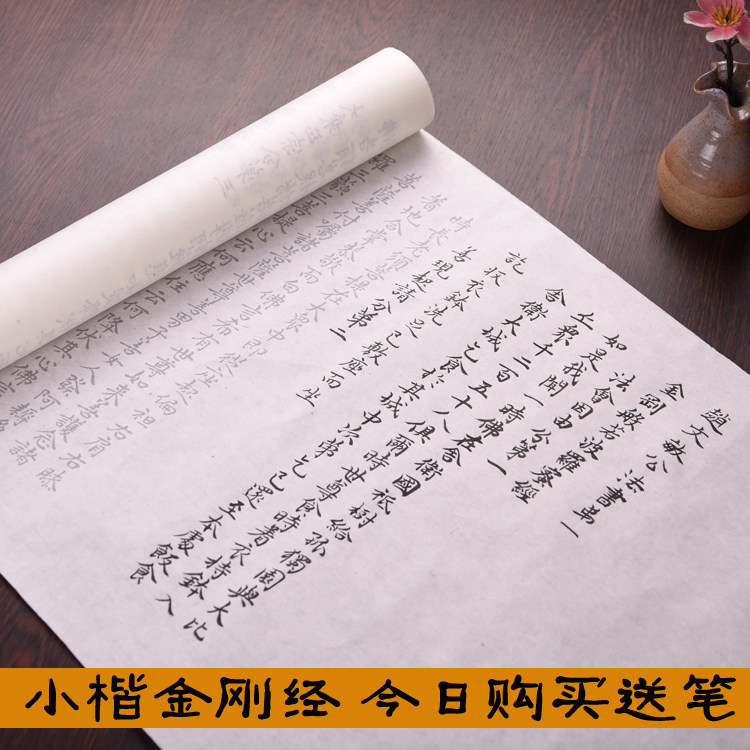 趙文敏公法書弟一
金剛般若波羅蜜經
法會因由分第一
如是我聞一時佛在舍衛國祇樹給孤獨園與大比
丘眾千二百五十人俱爾時世尊食時著衣持鉢入
舍衛大城乞食於其城中次第乞已還至本處飯食
訖收衣鉢洗足已敷座而坐
善現起請分第二
時長老須菩提在大眾中即從座起偏袒右肩右膝
著地合掌恭敬而白佛言希有世尊如來善護念諸
菩薩善付囑諸菩薩世尊善男子善女人發阿耨
羅三藐三菩提心云何應住云何降伏其心佛言
小楷金刚经 今日购买送笔